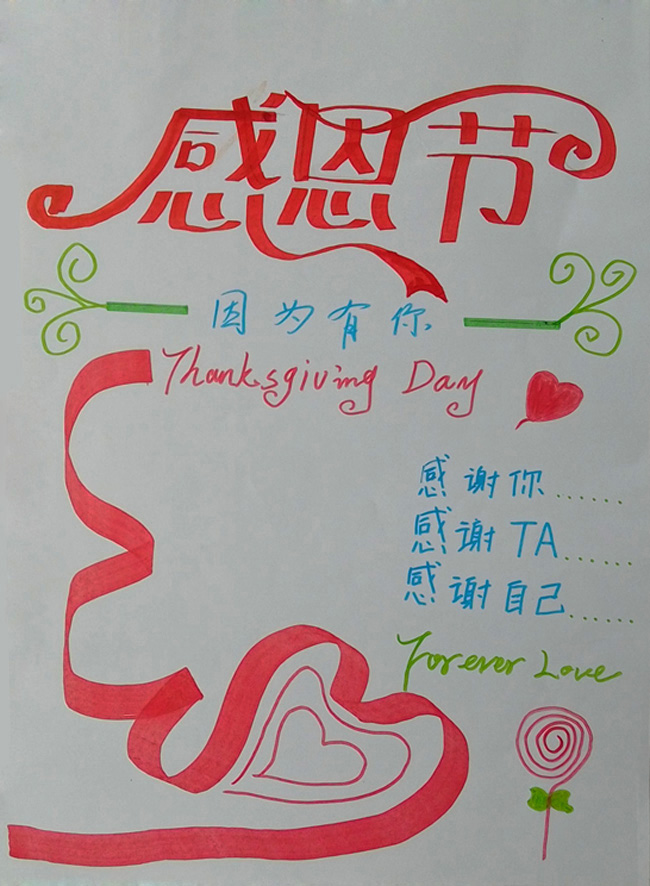 感恩节
因为有你
Thanksgiving Day
感谢你......
感谢TA......
感谢自己......
Forever Love